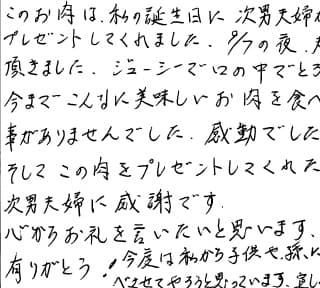 このお肉は、私の誕生日に次男夫婦が
プレゼントしてくれました。9/7の夜、
頂きました。ジューシーで口の中でとろ
今までこんなに美味しいお肉を食べ
事がありませんでした。感動でした
そしてこの肉をプレゼントしてくれた
次男夫婦に感謝です。
心からお礼を言いたいと思います、
有りがとう! 今度は私から子供や、孫に
べさせてやろうと思っています、宜し